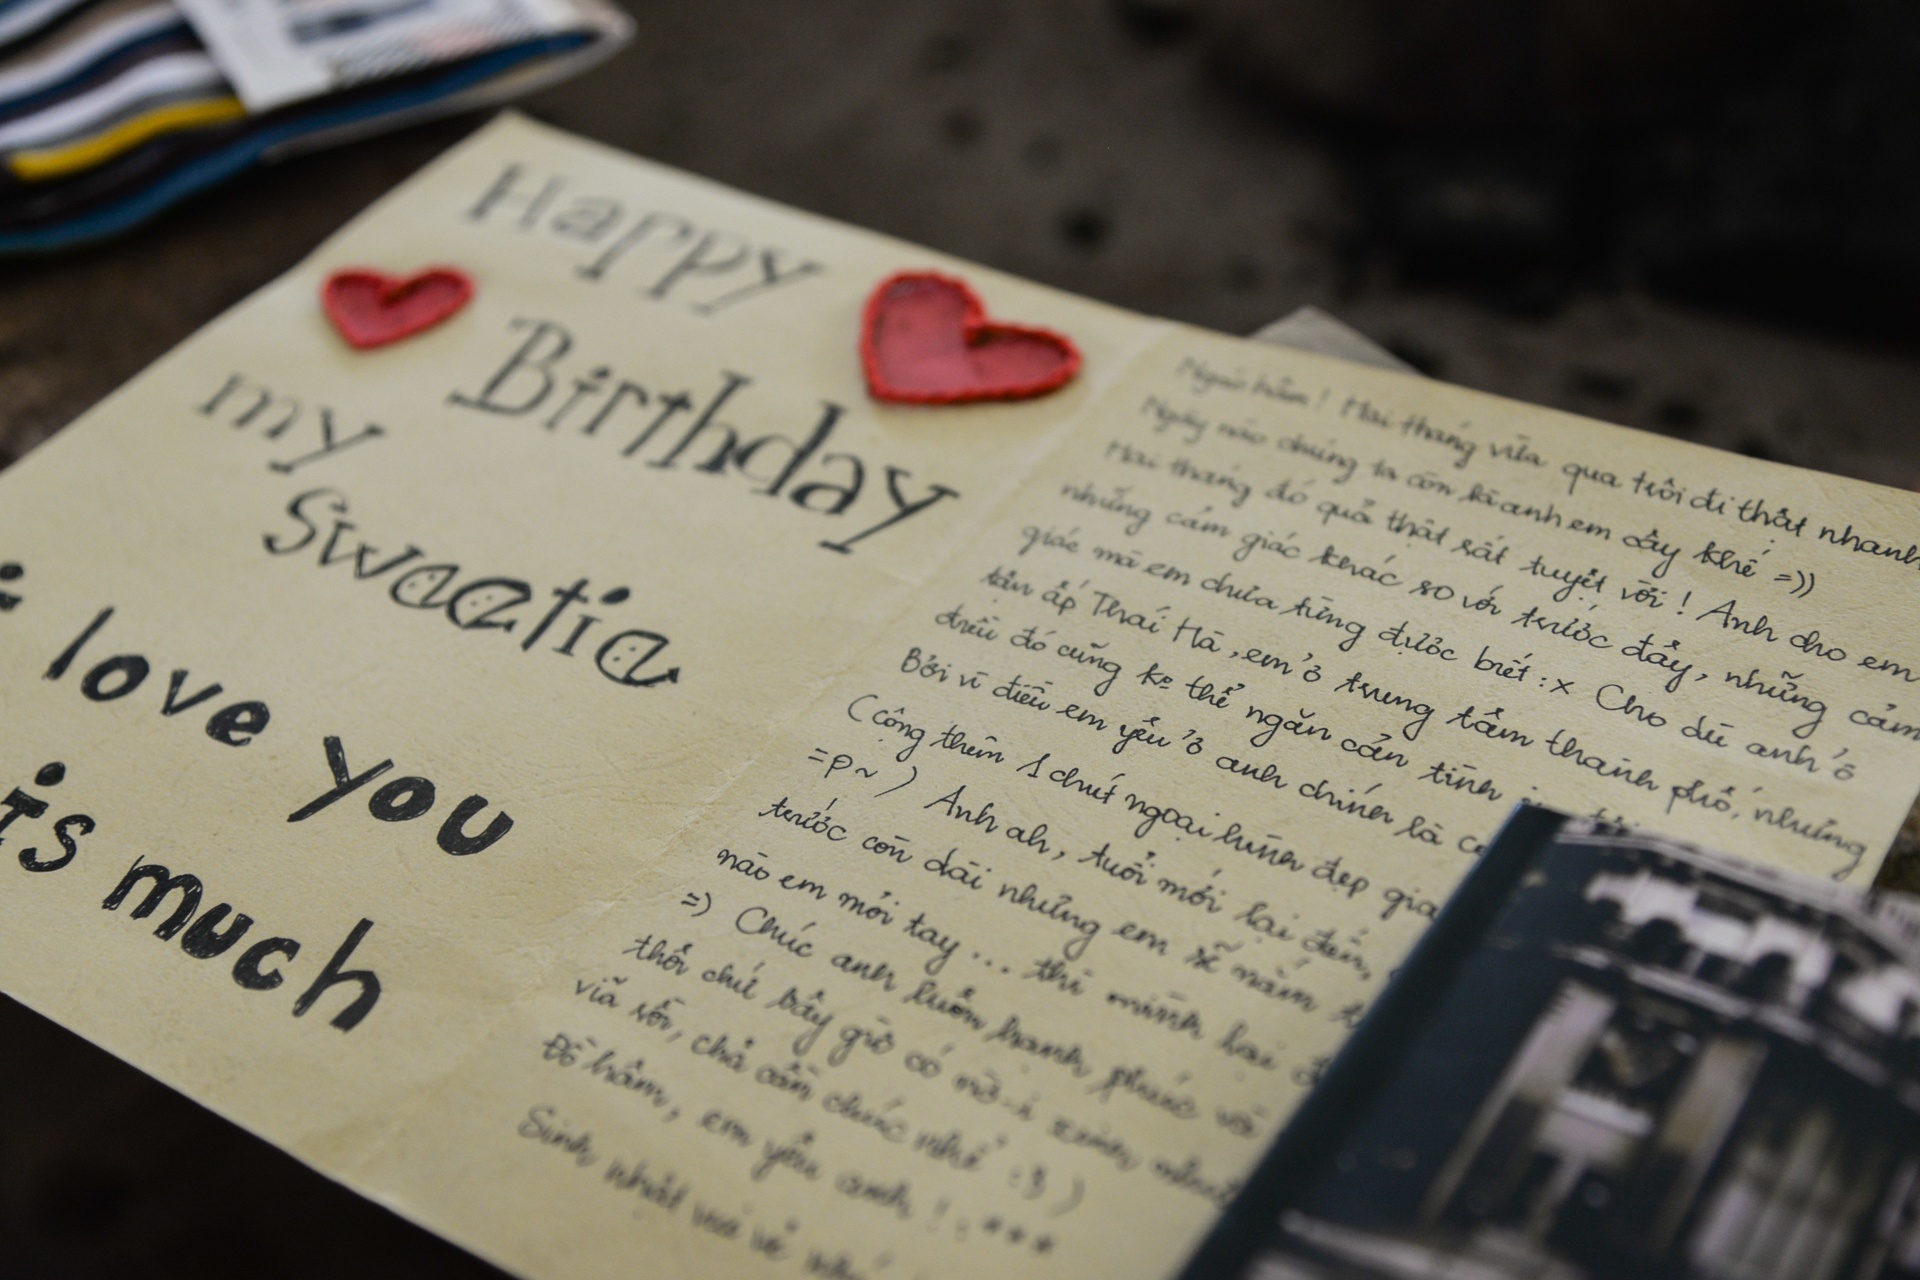 Happy
Birthday
my
Sweetie
i love you
is much
Ngáo hâm! Hai tháng vừa qua trôi đi thật nhanh
Ngày nào chúng ta còn là anh em đấy khé =))
Hai tháng đó quả thật rất tuyệt vời! Anh cho em
những cảm giác khác so với trước đây, những cảm
giác mà em chưa từng được biết :x Cho dù anh ở
tân ấp Thái Hà, em ở trung tâm thành phố, nhưng
điều đó cũng ko thể ngăn cản tình
Bởi vì điều em yêu ở anh chính là
(cộng thêm 1 chút ngoại hình đẹp
=p~) Anh ah, tuổi mới lại đến,
trước còn dài nhưng em sẽ nắm
nào em mỏi tay... thì mình lại
=)) Chúc anh luôn hạnh phúc và
thôi chứ bây giờ có
rồi, chả cần chúc nhể :3 )
Đồ hâm, em yêu anh! :***
Sinh nhật vui vẻ